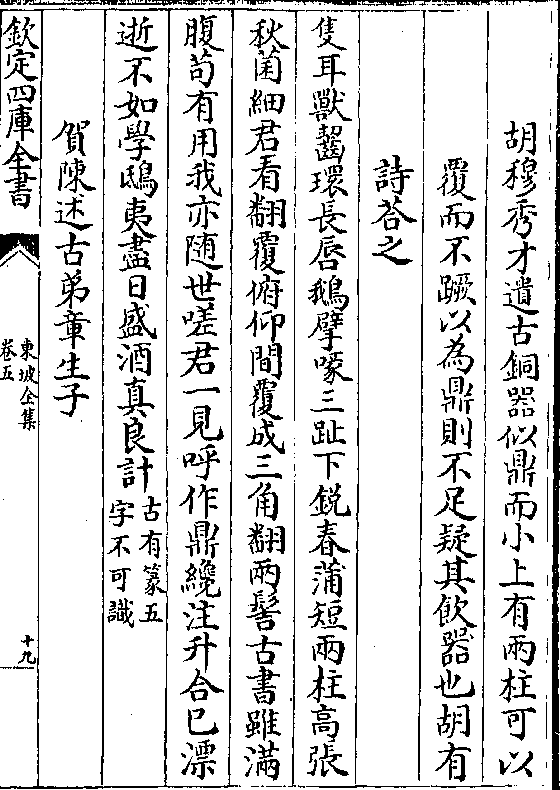 胡穆秀才遺古銅器似鼎而小上有兩柱可以
覆而不蹶以為鼎則不足疑其飲器也胡有
詩荅之
隻耳獸齧環長唇鵝擘喙三趾下銳春蒲短兩柱高張
秋菌細君看翻覆俯仰間覆成三角翻兩髻古書雖滿
腹苟有用我亦随世嗟君一見呼作鼎纔注升合已漂
逝不如學鴟夷盡日盛酒真良計
古有篆五
字不可識
賀陳述古弟章生子
欽定四庫全書
東坡全集
卷五
十九